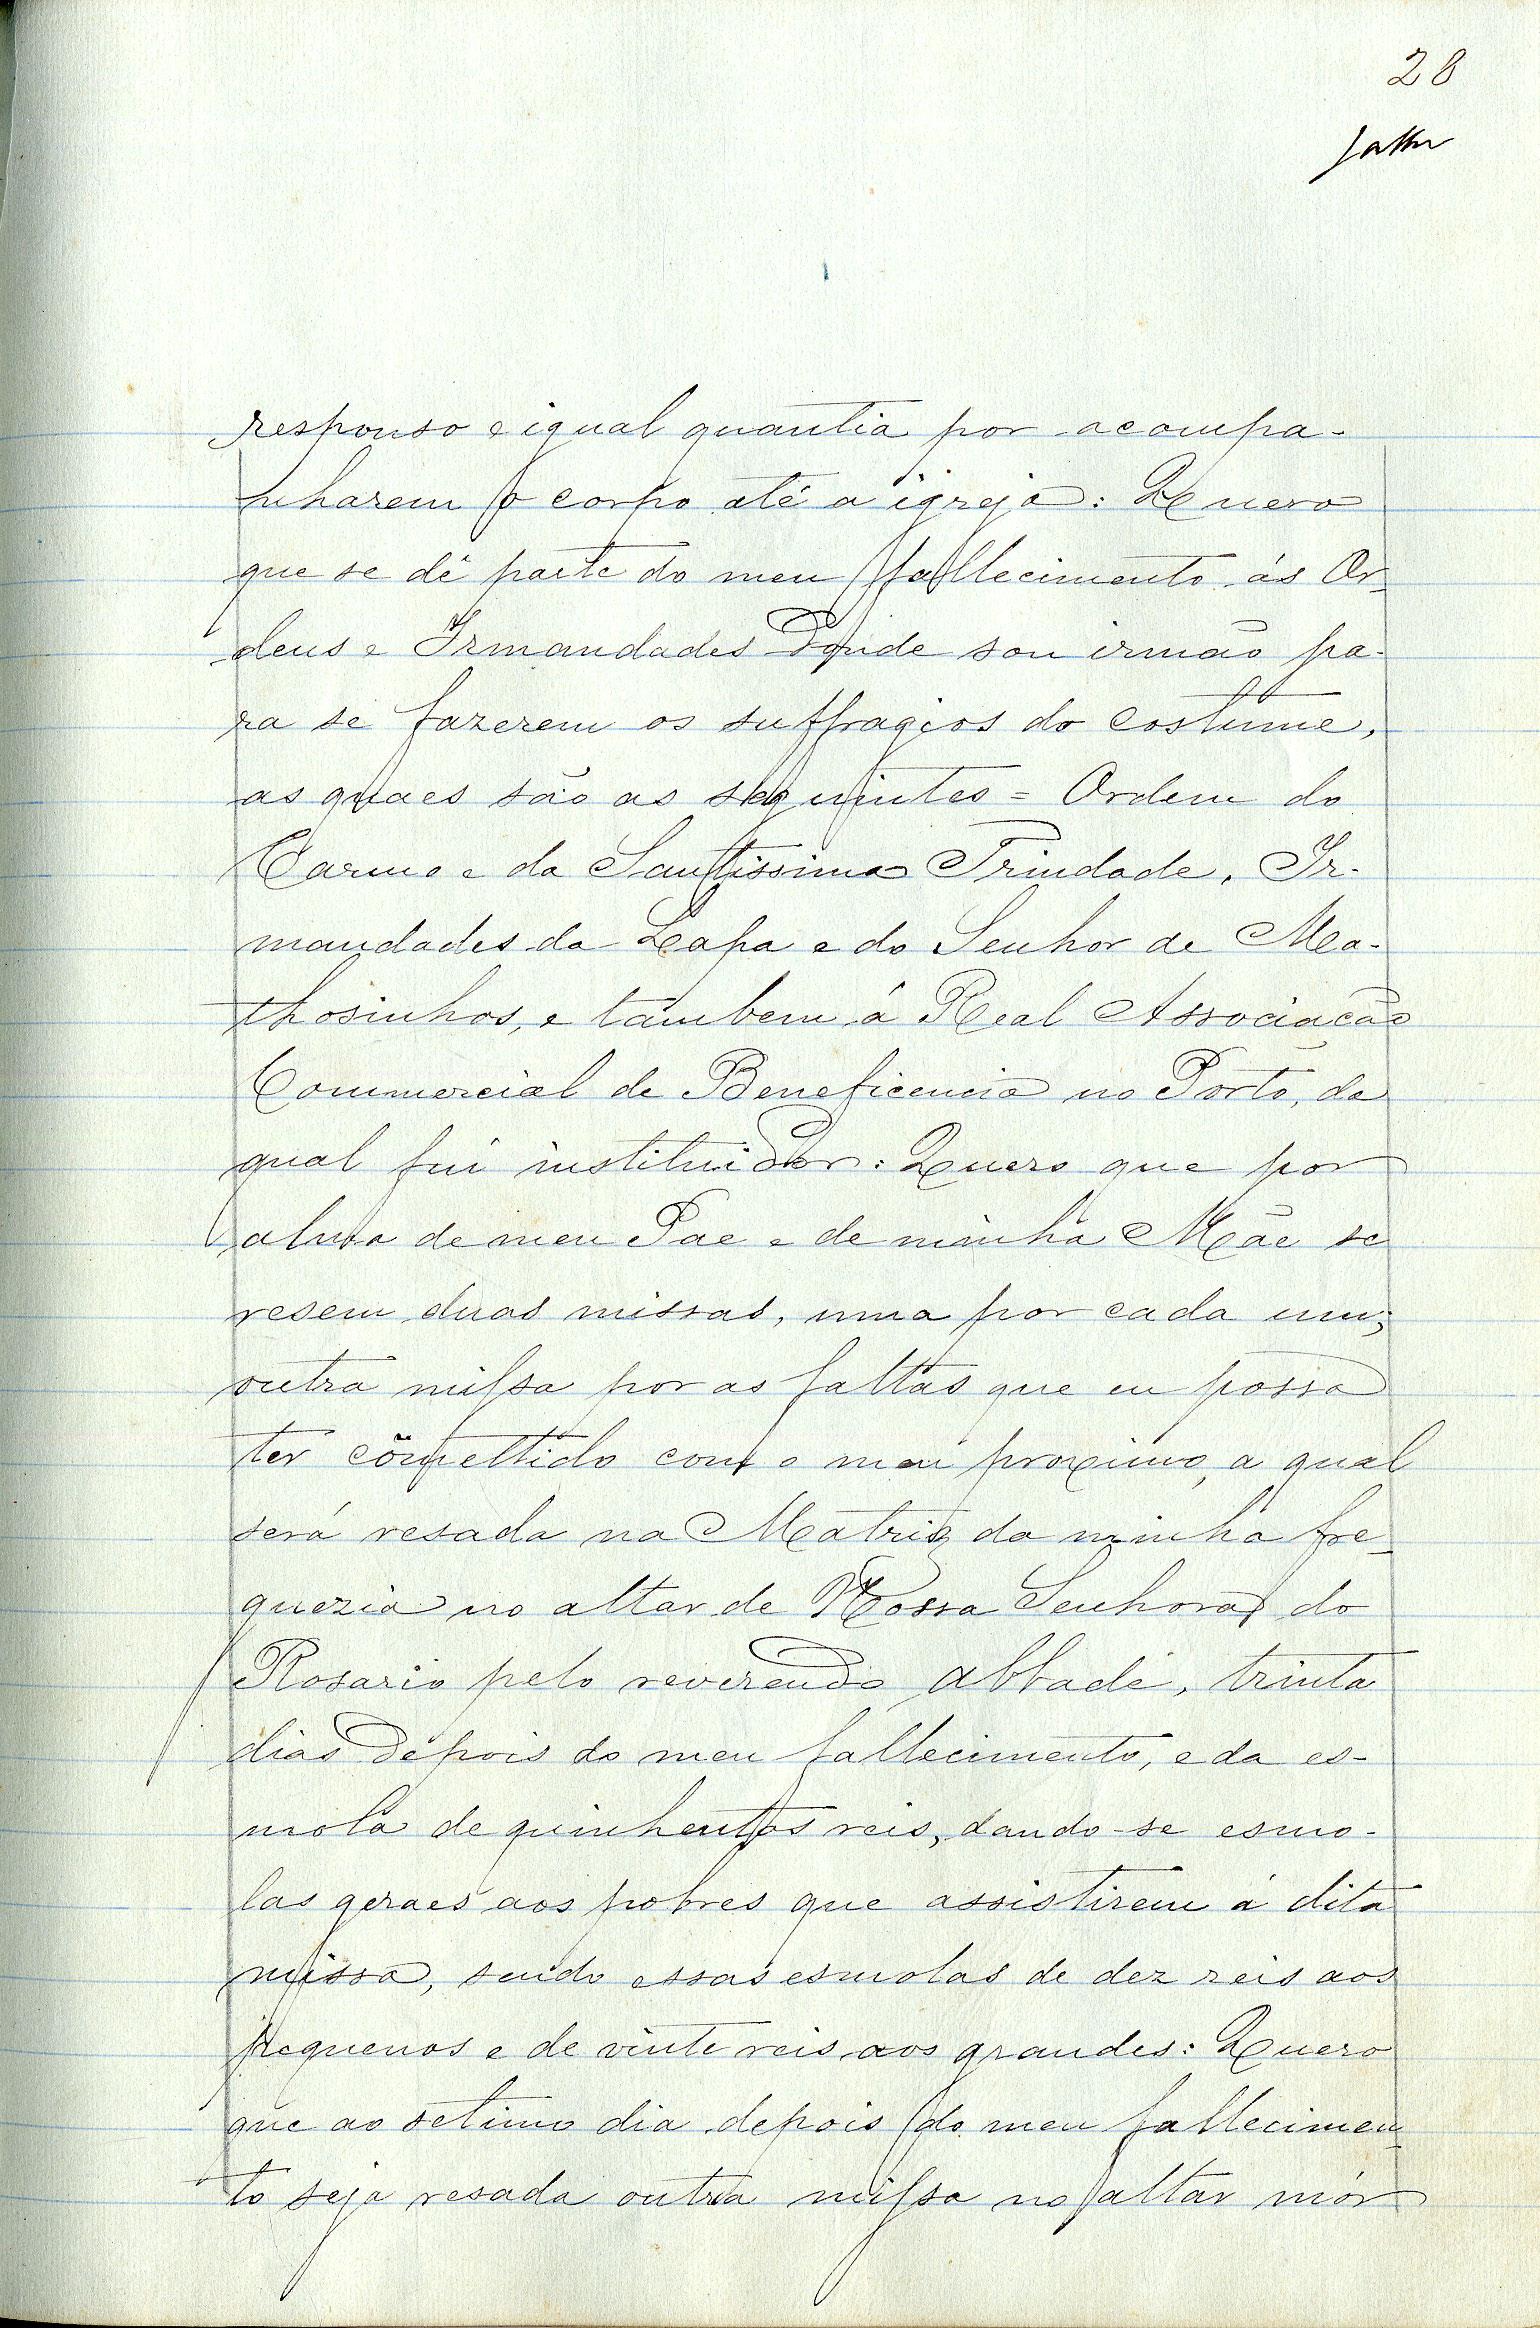 28
responso e igual quantia por acompa-
nharem o corpo até a igreja: Quero
que se dê parte do meu fallecimento ás Or-
dens e Irmandades d'onde sou irmão pa-
ra se fazerem os suffragios do costume,
as quaes são as seguintes = Ordem do
Carmo e da Santissima Trindade, Ir-
mandades da Lapa e do Senhor de Ma-
thosinhos, e tambem á Real Associacão
Commercial de Beneficencia no Porto, da
qual fui instituidor: Quero que por
alma de meu Pae e de minha Mãe se
resem duas missas, uma por cada um;
outra missa por as faltas que eu possa
ter cõmettido com o meu proximo, a qual
será resada na Matriz da minha fre-
guezia no altar de Nossa Senhora do
Rosario pelo reverendo Abbade, trinta
dias depois do meu fallecimento, e da es-
mola de quinhentos reis, dando-se esmo-
las geraes aos pobres que assistirem á dita
missa, sendo essas esmolas de dez reis aos
pequenos e de vinte reis aos grandes: Quero
que ao setimo dia depois do meu fallecimen-
to seja resada outra missa no altar mór